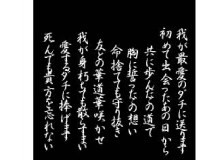 我が最愛のダチに送ります
初めて出会ったあの日から
共に歩んだこの道で
胸に誓ったこの想い
命捨てても守抜き
友との華道華咲かせ
我が身朽ちても散らすまい
愛するダチに捧げます
死んでも貴方を忘れない